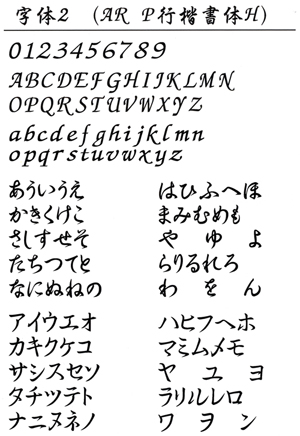 字体2 (AR P行楷書体H)
0123456789
ABCDEFGHIJKLMN
OPQRSTUVWXYZ
abcdefghijklmn
opqrstuvwxyz
あいうえ はひふへほ
かきくけこ まみむめも
さしすせそ や ゆ よ
たちつてと らりるれろ
なにぬねの わ を ん
アイウエオ ハヒフヘホ
カキクケコ マミムメモ
サシスセソ ヤ ユ ヨ
タチツテト ラリルレロ
ナニヌネノ ワ ヲ ン